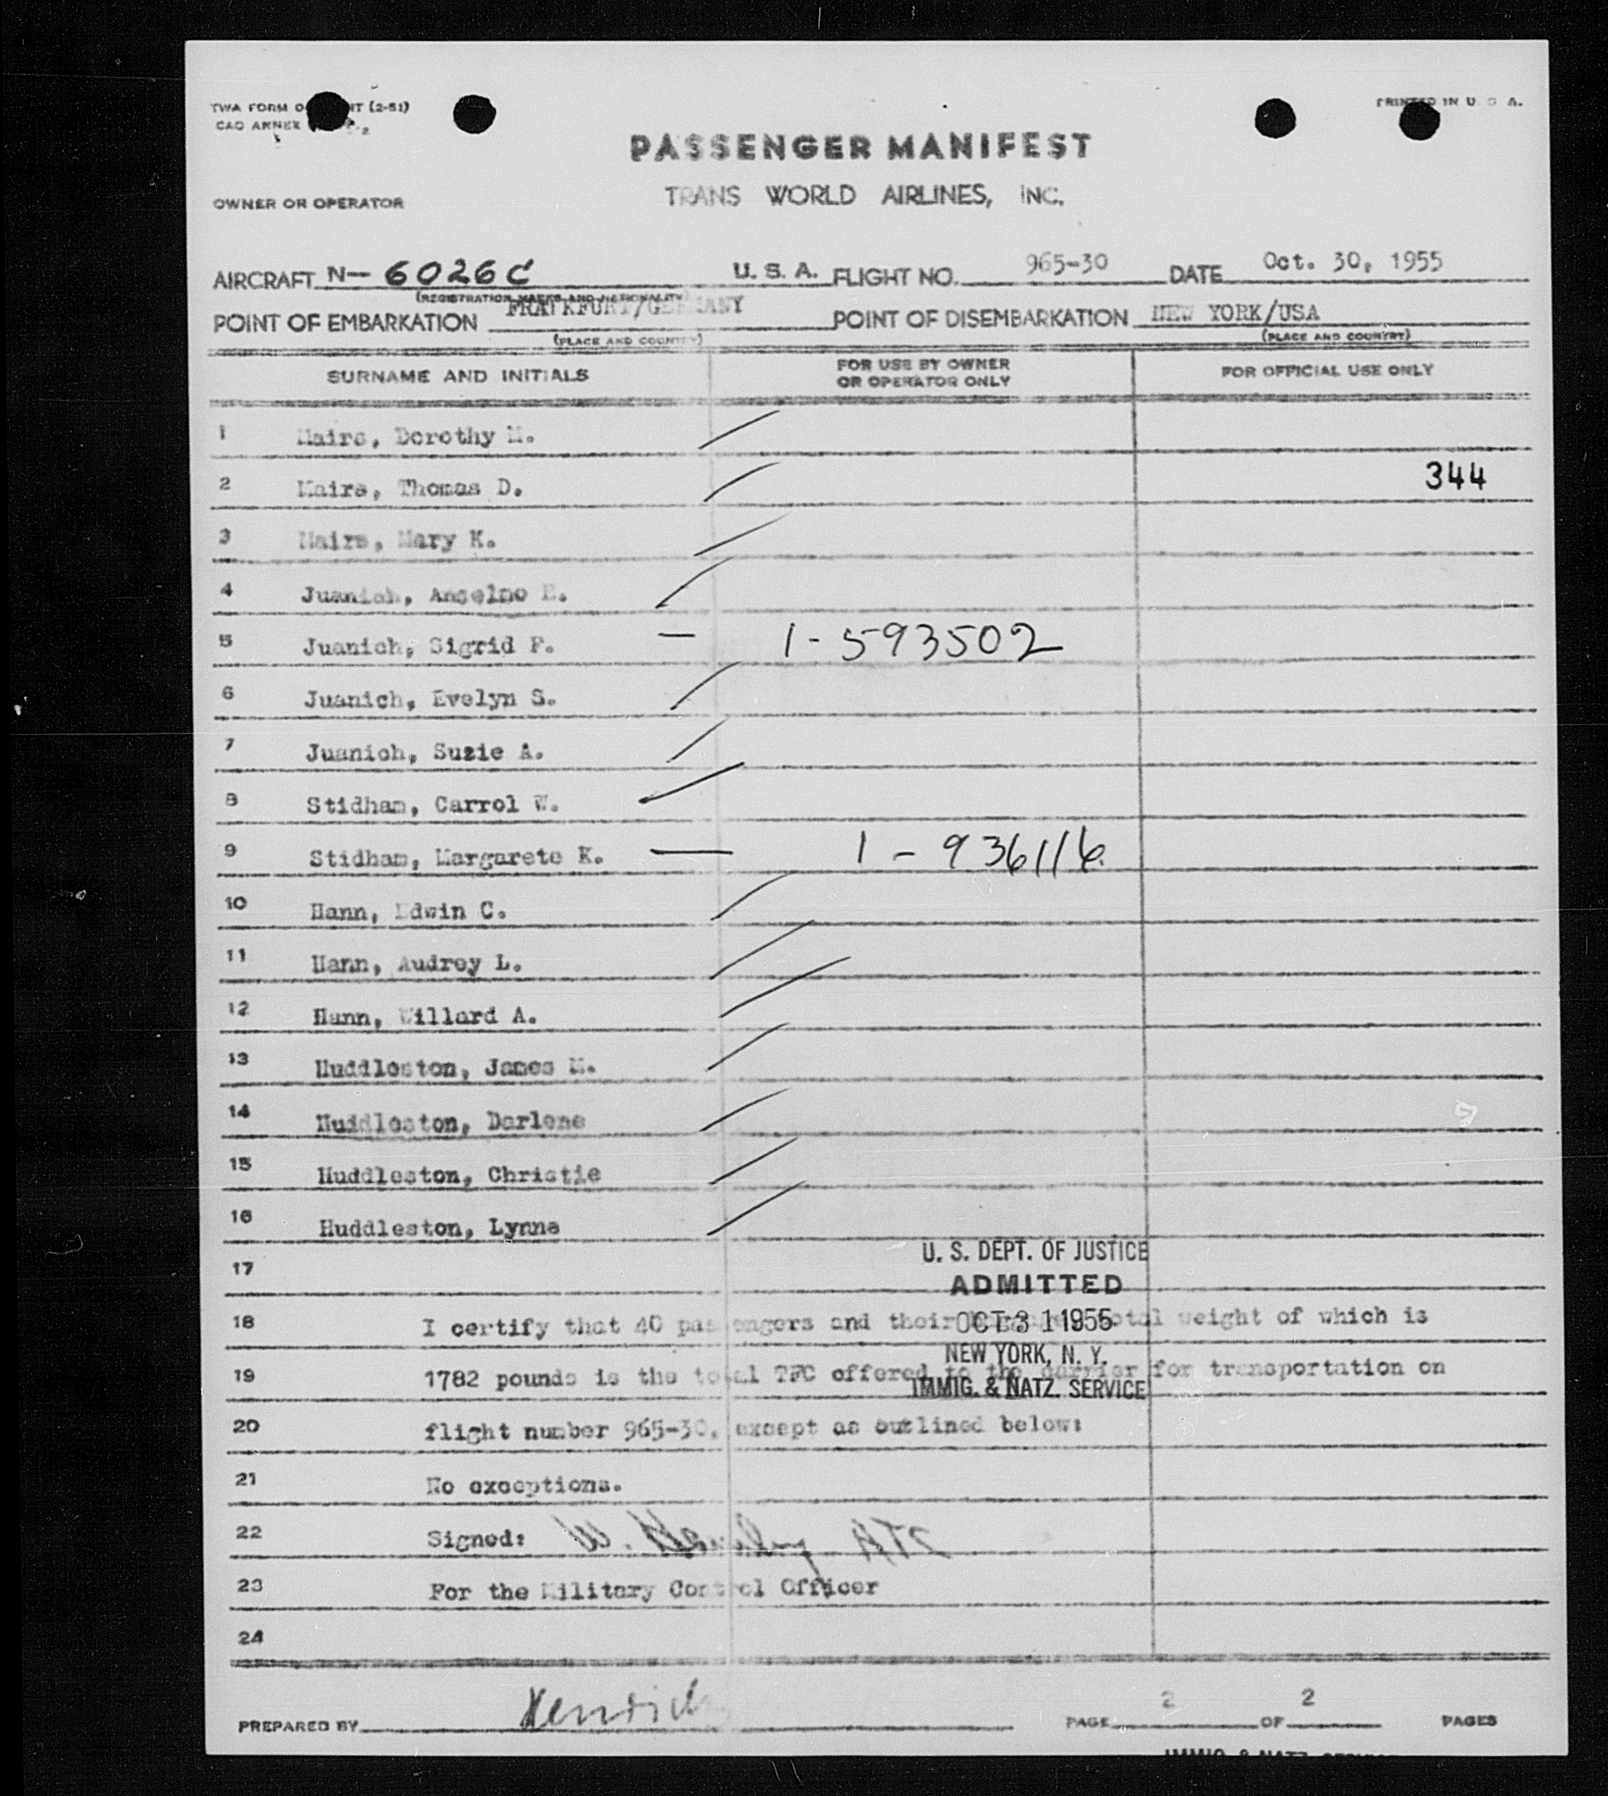 TWA FORM (2-51)
PRINTED IN U. S. A.
CAO ANNEX
PASSENGER MANIFEST
OWNER OR OPERATOR
TRANS WORLD AIRLINES, INC.
AIRCRAFT N-6026C U. S. A. FLIGHT NO. 965-30 DATE Oct. 30, 1955
(REGISTRATION MARKS AND NATIONALITY)
POINT OF EMBARKATION FRANKFURT/GERMANY POINT OF DISEMBARKATION NEW YORK/USA
(PLACE AND COUNTRY) (PLACE AND COUNTRY)
SURNAME AND INITIALS FOR USE BY OWNER OR OPERATOR ONLY FOR OFFICIAL USE ONLY
1 Mairs, Dorothy M.
2 Mairs, Thomas D. 344
3 Mairs, Mary K.
4 Juanich, Anselmo E.
5 Juanich, Sigrid F. - 1-593502
6 Juanich, Evelyn S.
7 Juanich, Suzie A.
8 Stidham, Carrol W.
9 Stidham, Margarete K. — 1-936116
10 Hann, Edwin C.
11 Hann, Audrey L.
12 Hann, Willard A.
13 Huddleston, James M.
14 Huddleston, Darlene
15 Huddleston, Christie
16 Huddleston, Lynne
U. S. DEPT. OF JUSTICE
17
ADMITTED
18 I certify that 40 passengers and their total weight of which is
OCT 31 1955
NEW YORK, N. Y.
19 1782 pounds is the total TFC offered to the carrier for transportation on
IMMIG. & NATZ. SERVICE
20 flight number 965-30, except as outlined below:
21 No exceptions.
22 Signed:
23 For the Military Control Officer
24
PREPARED BY Hendrick PAGE 2 OF 2 PAGES
IMMIG. & NATZ. SERVICE